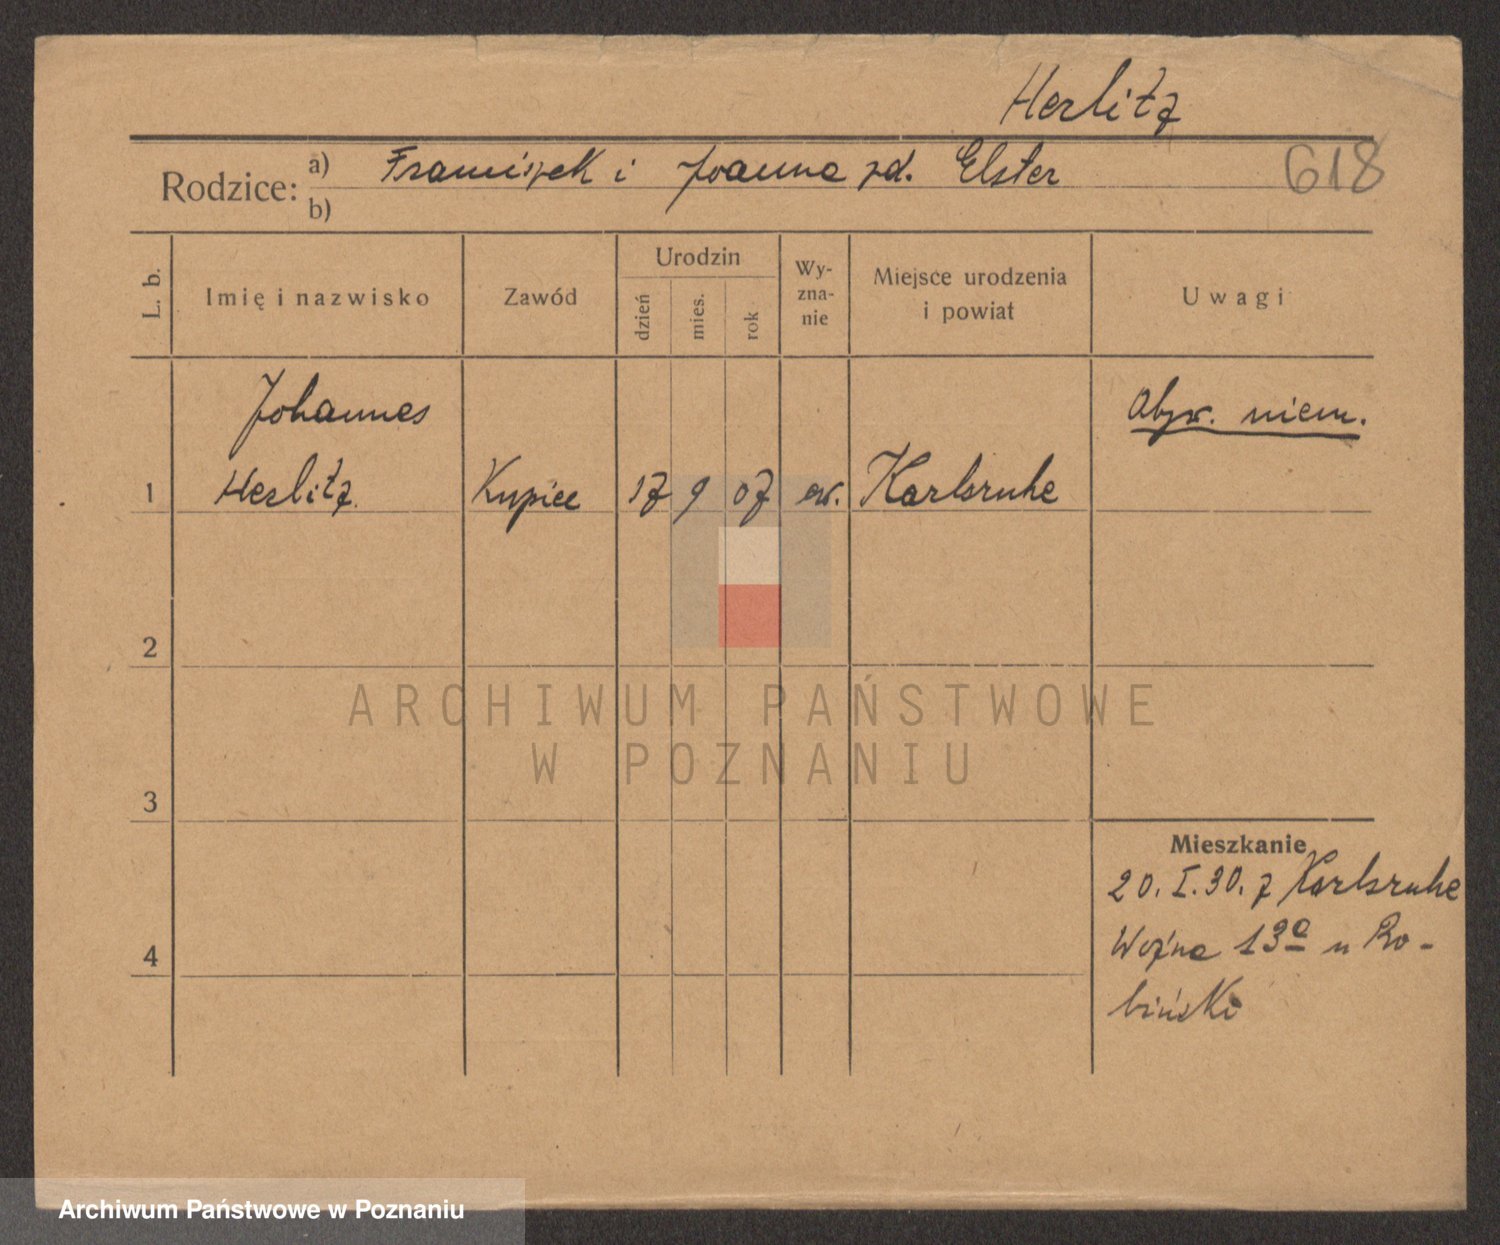 Herlitz
Rodzice: a) Franciszek i Joanna zd. Elster
b)
618
L. b.
Imię i nazwisko
Zawód
Urodzin
dzień
mies.
rok
Wy-
zna-
nie
Miejsce urodzenia
i powiat
Uwagi
Johannes
Obyw. niem.
1 Herlitz Kupiec 17 9 07 ew. Karlsruhe
2
ARCHIWUM PAŃSTWOWE
W POZNANIU
3
Mieszkanie
20. I. 30. z Karlsruhe
Woźna 13a u
4
Archiwum Państwowe w Poznaniu